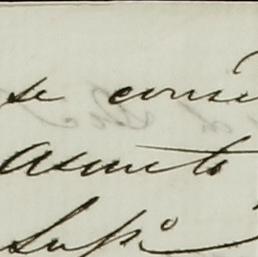 se conse
Asunto
Supº